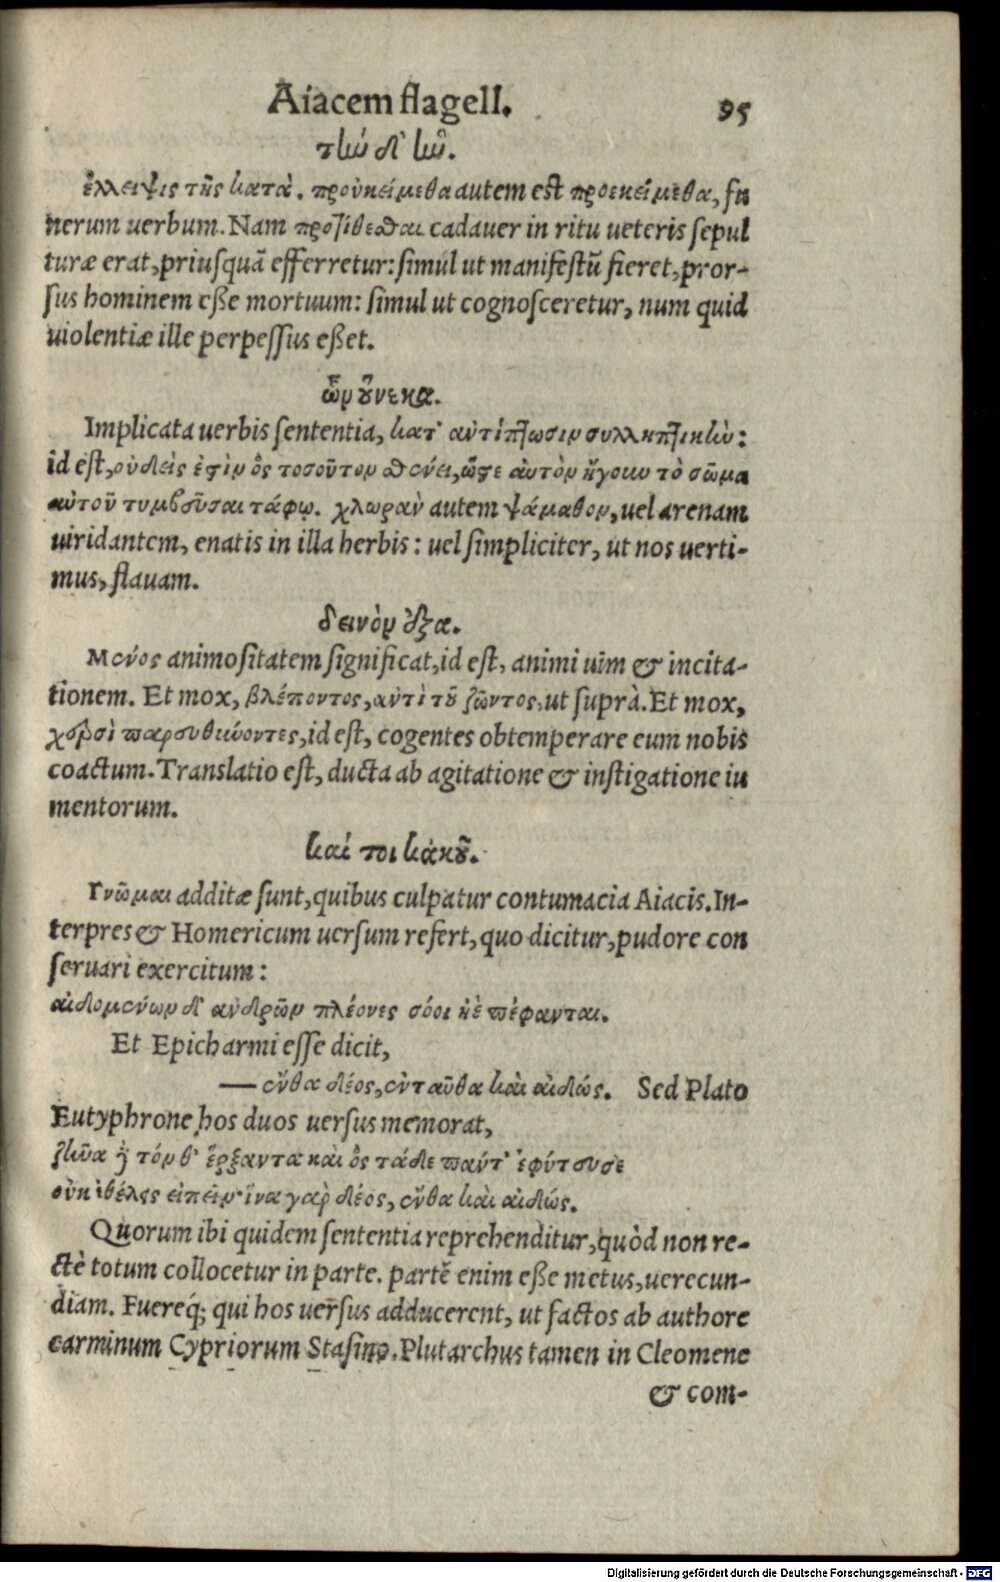 Aiacem flagell. 95
τὴν δ' ἦν.
ἔλλειψις τῆς κατὰ. προὐκείμεθα autem est προεκείμεθα, fu
nerum uerbum. Nam προτίθεσθαι cadauer in ritu ueteris sepul
turæ erat, priusquã efferretur: simul ut manifestũ fieret, pror-
sus hominem eſſe mortuum: simul ut cognosceretur, num quid
uiolentiæ ille perpessus eſſet.
ὧν οὕνεκα.
Implicata uerbis sententia, κατ' ἀντίπτωσιν συλληπτικὴν:
id est, οὐδεὶς ἐστὶν ὃς τοσοῦτον σθένει, ὥστε ἀυτὸν ἤγουν τὸ σῶμα
αὐτοῦ τυμβεῦσαι τάφῳ. χλωρὰν autem ψάμαθον, uel arenam
uiridantem, enatis in illa herbis: uel simpliciter, ut nos uerti-
mus, flauam.
δεινὸν ἐξα.
Μένος animositatem significat, id est, animi uim & incita-
tionem. Et mox, βλέποντος, ἀντὶ τοῦ ζῶντος, ut suprà. Et mox,
χερσὶ παρευθύνοντες, id est, cogentes obtemperare eum nobis
coactum. Translatio est, ducta ab agitatione & instigatione iu
mentorum.
καί τοι κἀκοῦ.
Γνῶμαι additæ sunt, quibus culpatur contumacia Aiacis. In-
terpres & Homericum uersum refert, quo dicitur, pudore con
seruari exercitum:
αἰδομένων δ' ἀνδρῶν πλέονες σόοι ἠὲ πέφανται.
Et Epicharmi esse dicit,
— ἔνθα δέος, ἐνταῦθα καὶ αἰδώς. Sed Plato
Eutyphrone hos duos uersus memorat,
ζῆνα δὲ τόν θ' ἕρξαντα καὶ ὃς τάδε πάντ' ἐφύτευσε
οὐκ ἐθέλεις εἰπεῖν· ἵνα γὰρ δέος, ἔνθα καὶ αἰδώς.
Quorum ibi quidem sententia reprehenditur, quòd non re-
ctè totum collocetur in parte. partẽ enim eſſe metus, uerecun-
diam. Fuereq́; qui hos uersus adducerent, ut factos ab authore
carminum Cypriorum Stasino. Plutarchus tamen in Cleomene
& com-
Digitalisierung gefördert durch die Deutsche Forschungsgemeinschaft - DFG